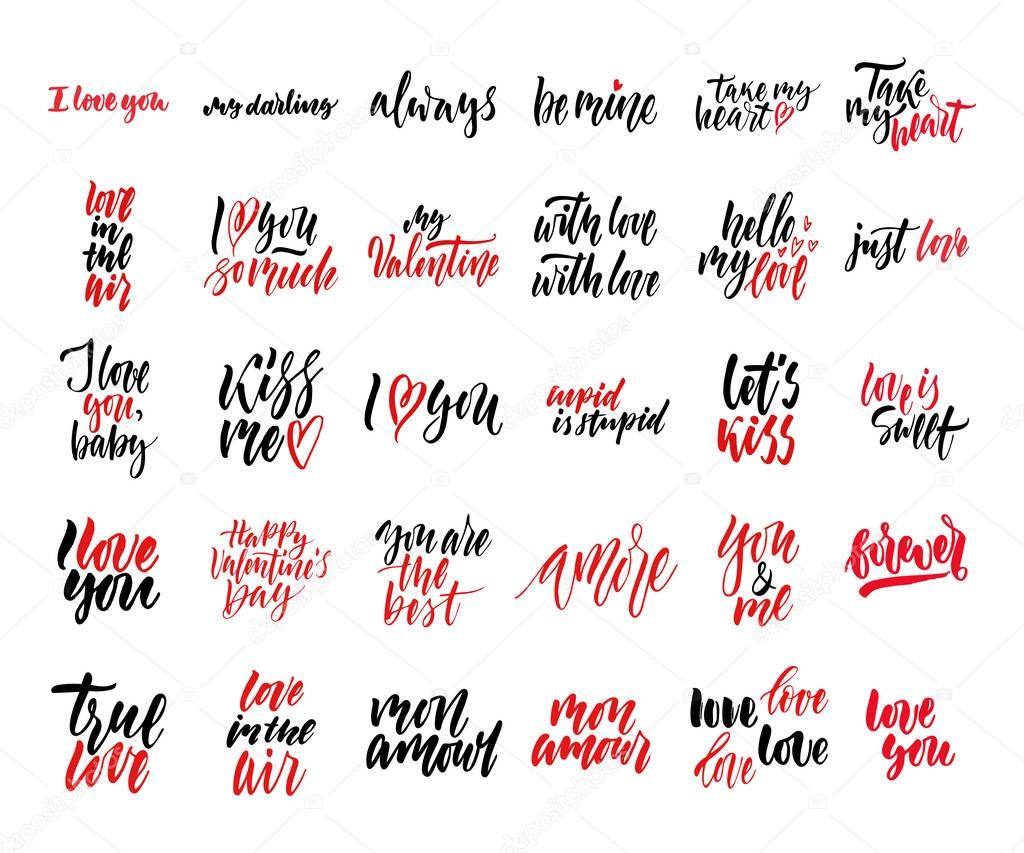 I love you
my darling
always
be mine
take my
heart
Take
my heart
love
in
the
air
I you
so much
my
Valentine
with love
with love
hello
my love
just love
I love
you,
baby
kiss
me
I you
cupid
is stupid
let's
kiss
love is
sweet
I love
you
Happy
Valentine's
Day
you are
the
best
amore
you
&
me
forever
true
love
love
in the
air
mon
amour
mon
amour
love love
love love
love
you
depositphotos